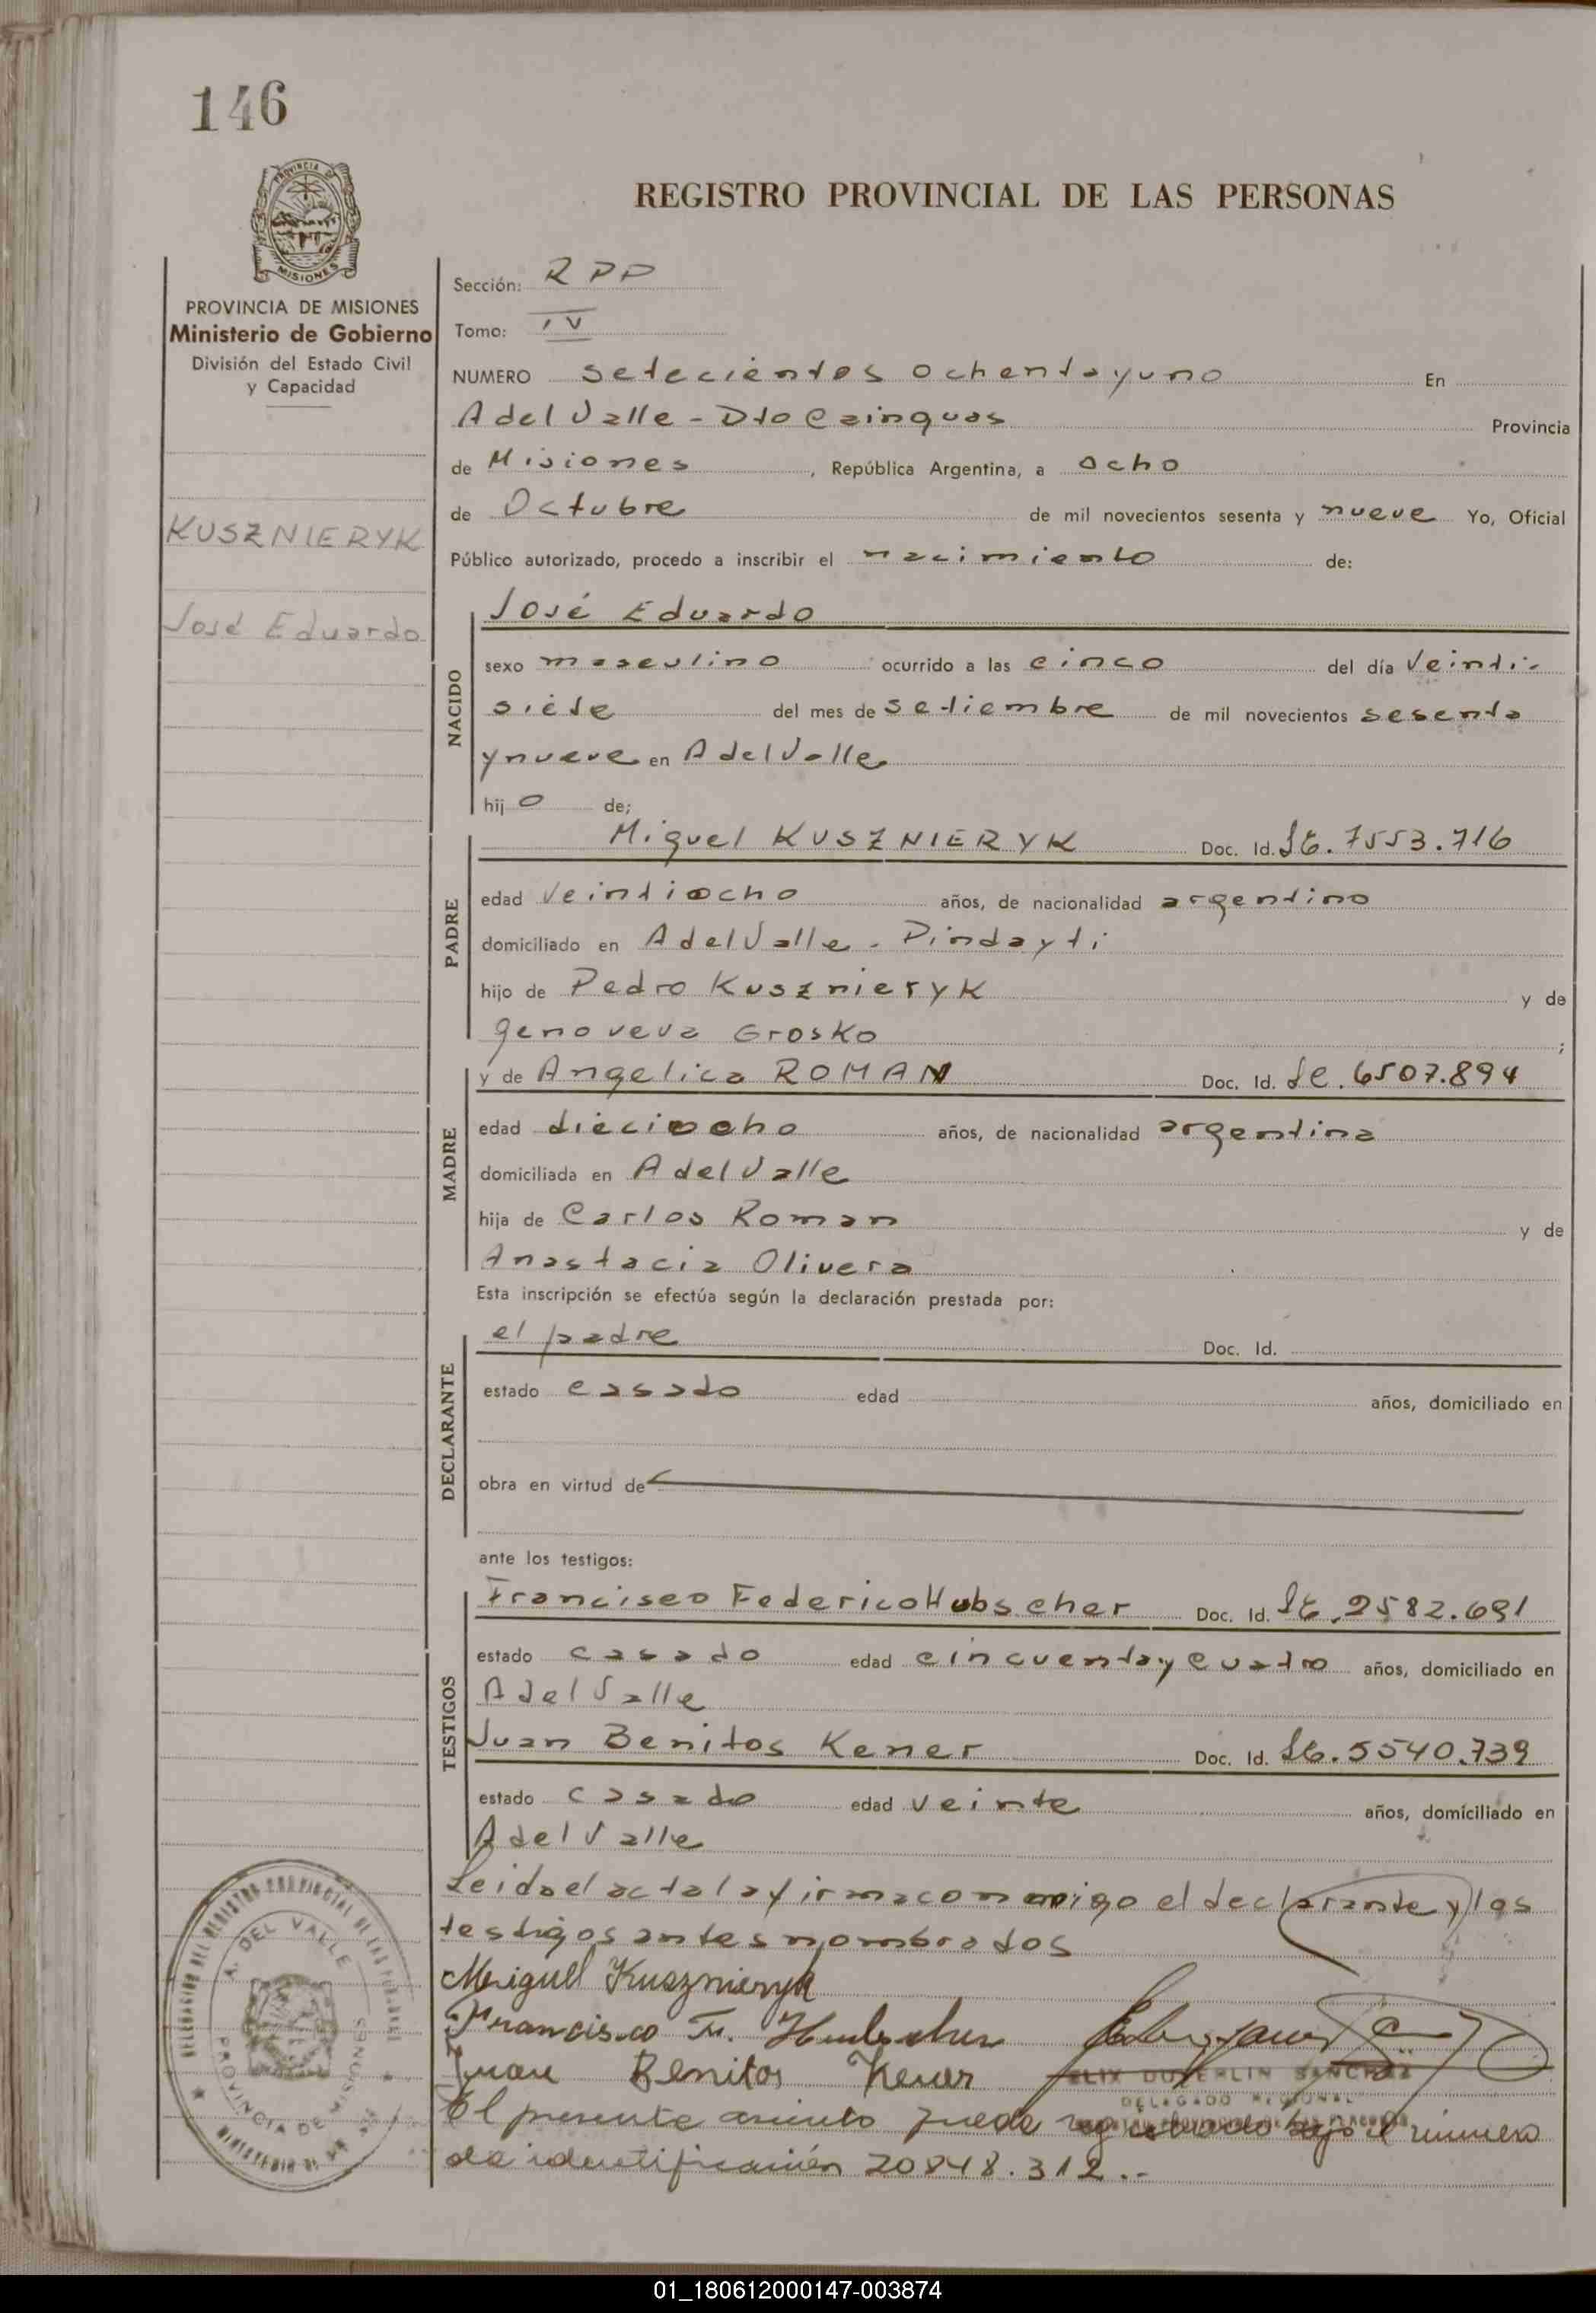 146
PROVINCIA DE MISIONES
Ministerio de Gobierno
División del Estado Civil
y Capacidad
KUSZNIERYK
José Eduardo
REGISTRO PROVINCIAL DE LAS PERSONAS
Sección: RPP
Tomo: IV
NUMERO setecientos ochentayuno En
A del Valle - Dto Cainguas Provincia
de Misiones, República Argentina, a ocho
de Octubre de mil novecientos sesenta y nueve Yo, Oficial
Público autorizado, procedo a inscribir el nacimiento de:
NACIDO
José Eduardo
sexo masculino ocurrido a las cinco del día Veinti-
siete del mes de setiembre de mil novecientos sesenta
y nueve en A del Valle
hijo de;
PADRE
Miguel KUSZNIERYK Doc. Id. LE. 7553.716
edad Veintiocho años, de nacionalidad argentino
domiciliado en A del Valle - Pindayti
hijo de Pedro Kusznieryk y de
genoveva Grosko ;
MADRE
y de Angelica ROMAN Doc. Id. Lc. 6507.894
edad dieciocho años, de nacionalidad argentina
domiciliada en A del Valle
hija de Carlos Roman y de
Anastacia Olivera
Esta inscripción se efectúa según la declaración prestada por:
DECLARANTE
el padre Doc. Id.
estado casado edad años, domiciliado en
obra en virtud de
ante los testigos:
TESTIGOS
Francisco Federico Hubscher Doc. Id. LE. 2582.691
estado casado edad cincuentay cuatro años, domiciliado en
A del Valle
Juan Benitos Kener Doc. Id. LE. 5540.739
estado casado edad veinte años, domiciliado en
A del Valle
Leida el acta la firmaconmigo el declarante y los
testigos antes nombrados
Miguel Kusznieryk
Francisco F. Hubscher
Juan Benitos Kener
SANCHEZ
DELEGADO REGIONAL
El presente asiento puede registrado bajo el número
de identificación 20848.312.-
DELEGACION DEL REGISTRO PROVINCIAL DE LAS PERSONAS
A. DEL VALLE
PROVINCIA DE MISIONES
01_180612000147-003874